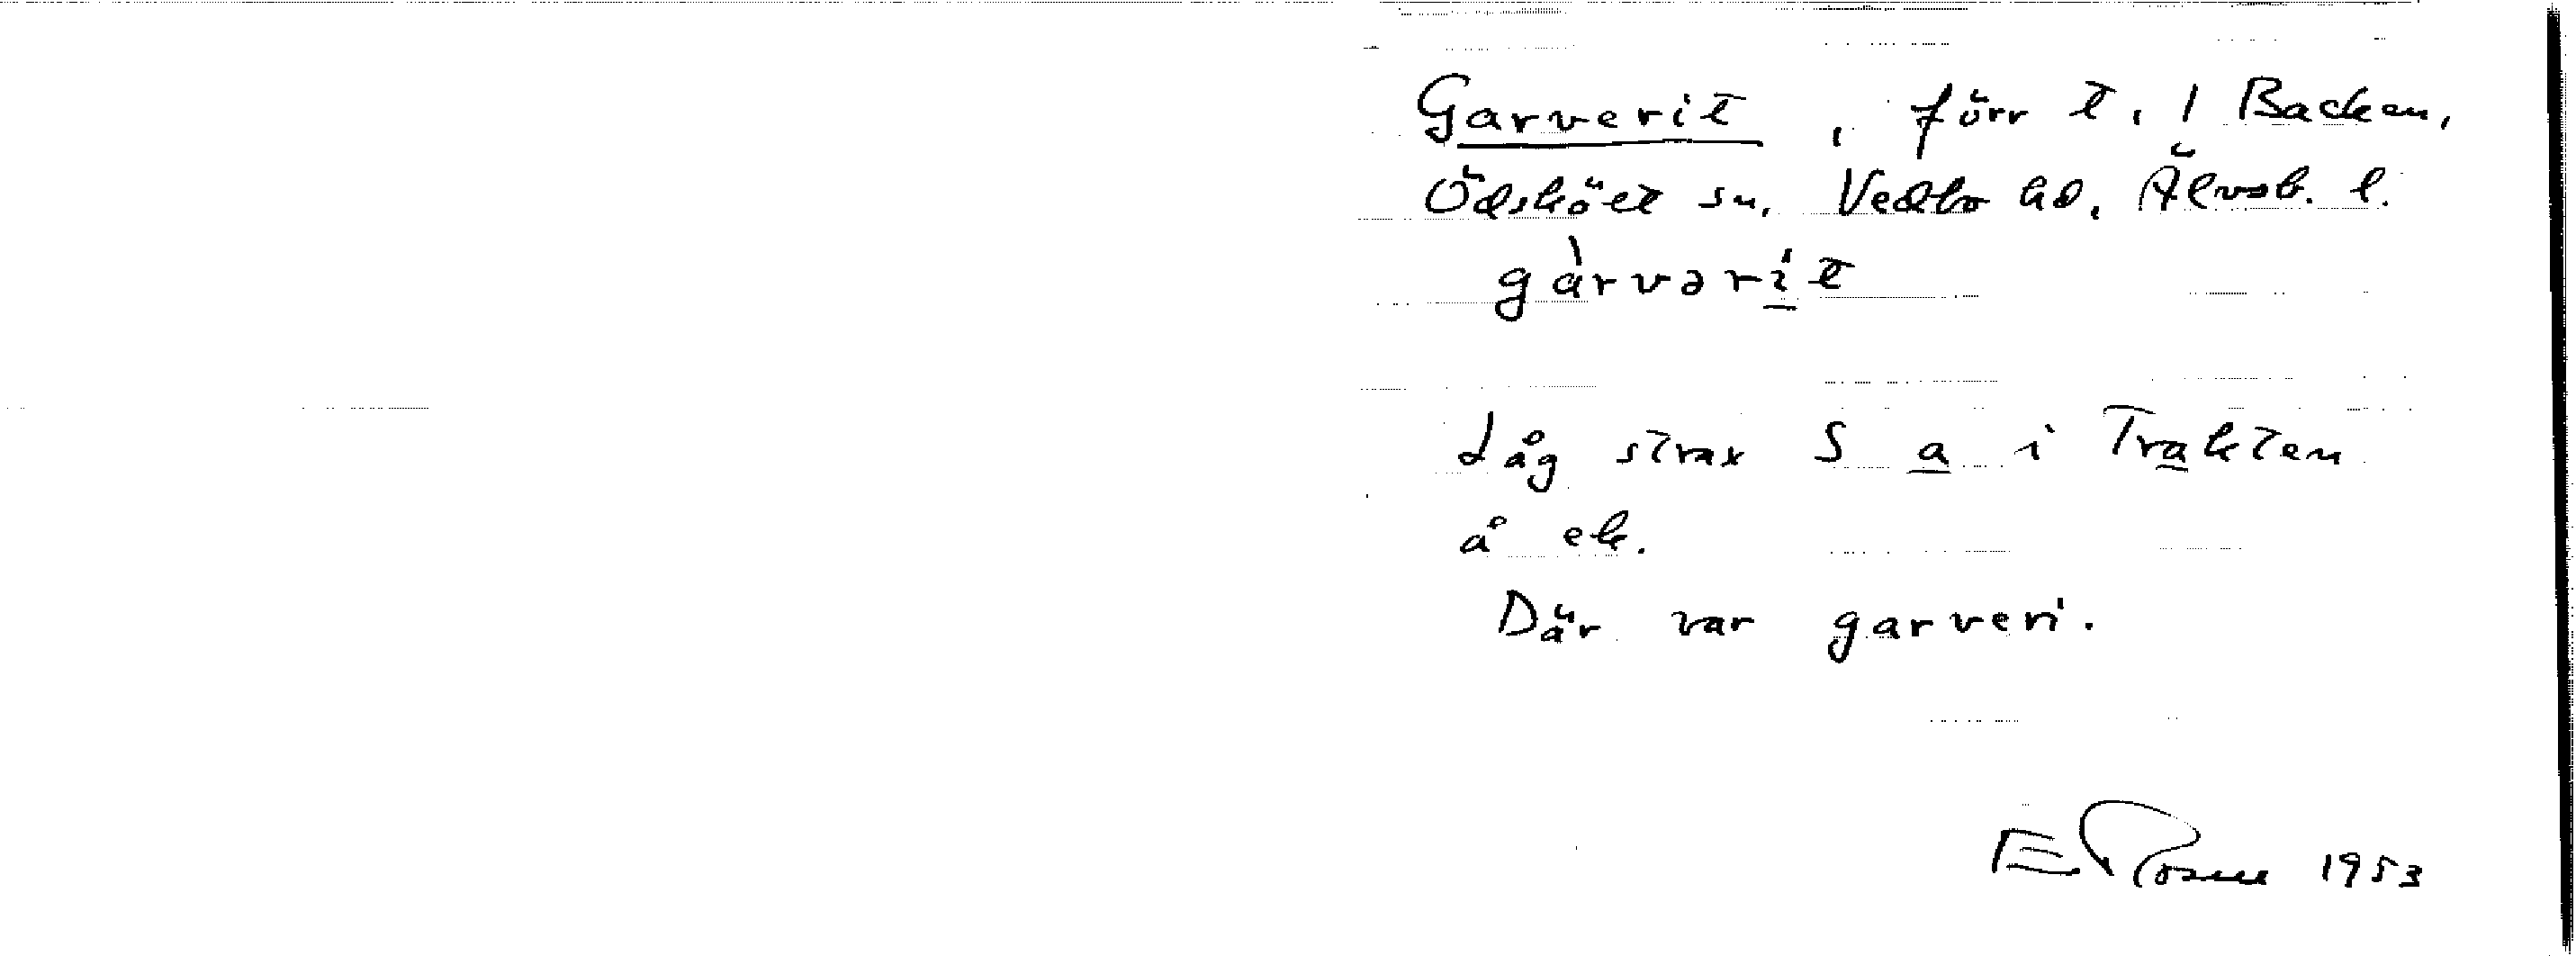 Garverit, förr t. 1 Backen,
Ödsköet sn, Vedbo hd, Älvsb. l.
gàrvərı̲́t
Låg strax S a̲ i Tra̲kten
å ek.
Där var garveri.
E Rosell 1953